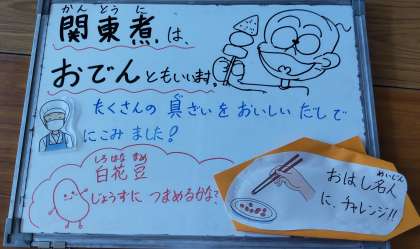 かん とう に
関東煮は、
おでんともいいます。
たくさんの 具ざいを おいしい だしで
にこみました！
しろ はな まめ
白花豆
じょうずに つまめるかな？
めいじん
おはし名人
に、チャレンジ！！